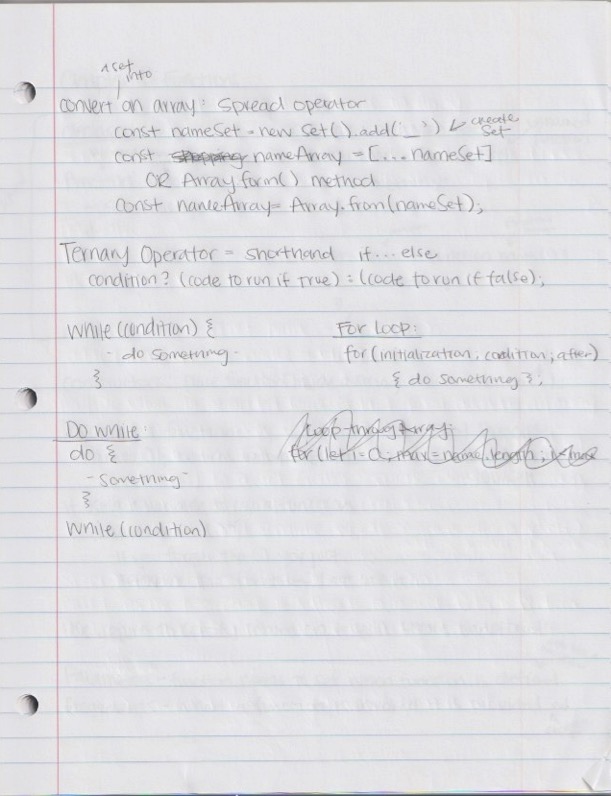 a set
into
convert an array: Spread operator
const nameSet = new Set().add('_') create
Set
const shopping nameArray = [...nameSet]
OR Array.form() method
const nameArray = Array.from(nameSet);
Ternary Operator = shorthand if...else
condition? (code to run if true) : (code to run if false);
While (condition) { For Loop:
- do something - for (initialization; condition; after)
} { do something };
Do While: Loop through Array:
do { for (let i = 0; max = name.length; i < max
- something -
}
While (condition)